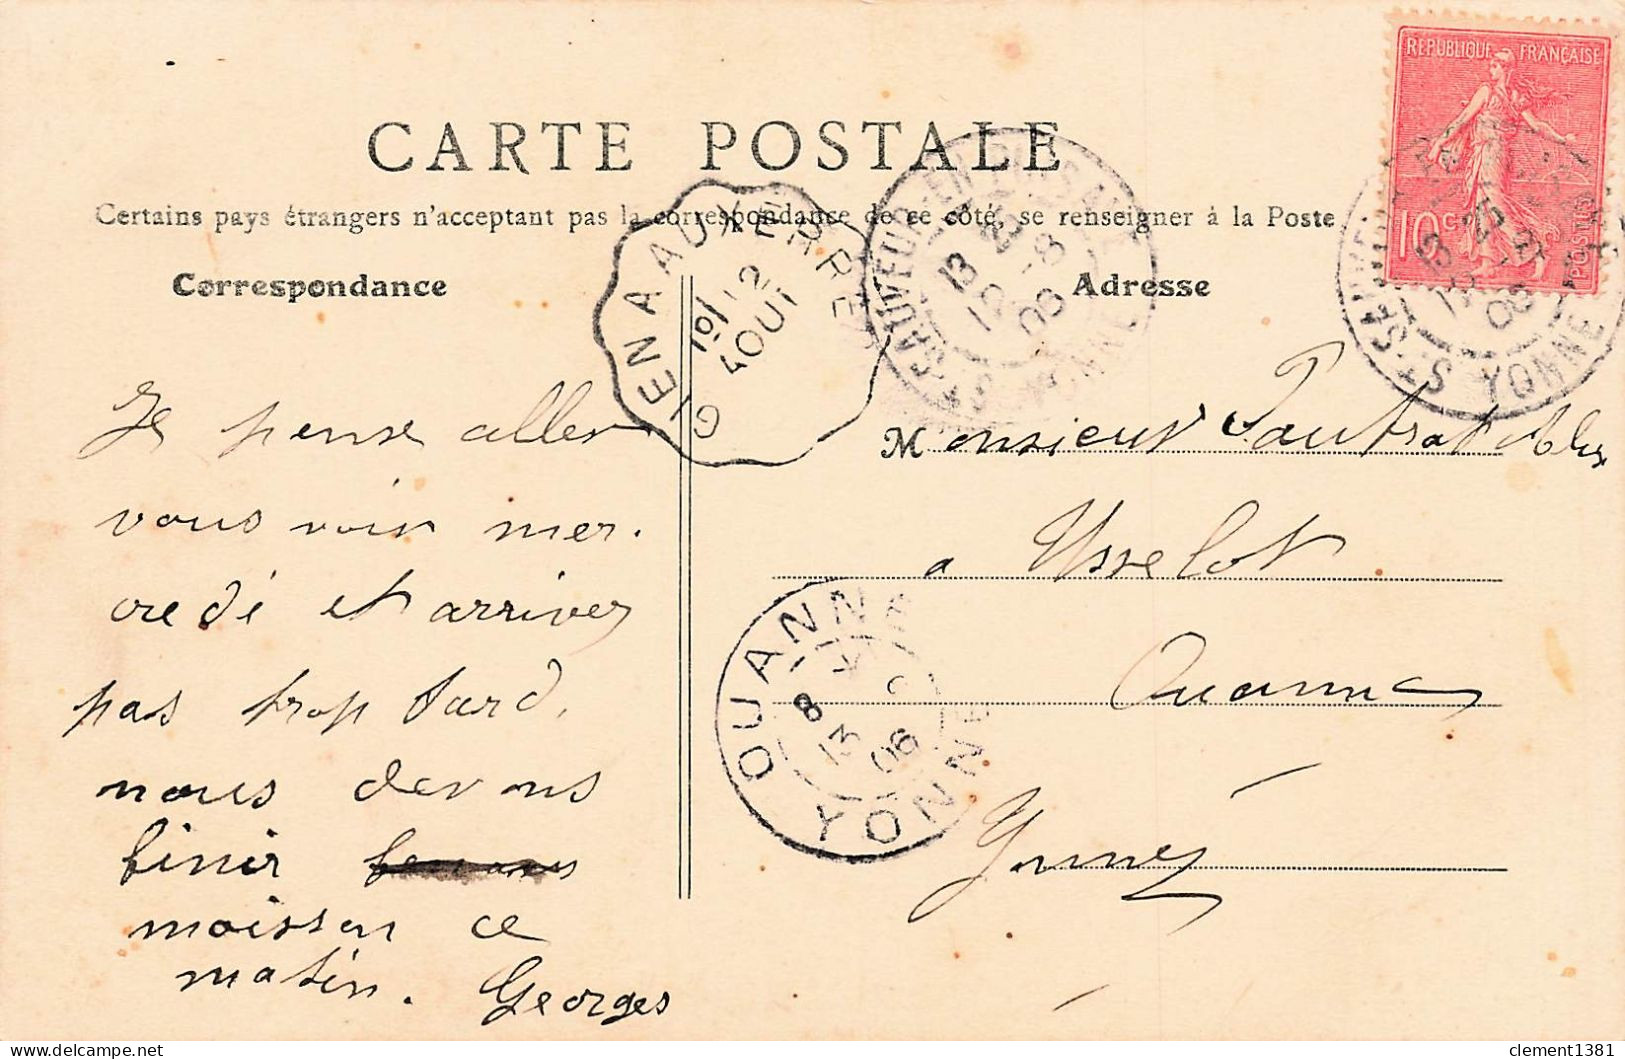 REPUBLIQUE FRANÇAISE
10c
POSTES
CARTE POSTALE
Certains pays étrangers n'acceptant pas la correspondance de ce côté, se renseigner à la Poste
Correspondance
Adresse
GIEN A AUXERRE
12
AOUT
SAUVEUR-EN-PUISAYE
13 -8
08
YONNE
Sr SAUVEUR
13
08
YONNE
Je pense aller
vous voir mer.
credi et arriver
pas trop tard,
nous devons
finir
moisson ce
matin. Georges
Monsieur Pautrat Alex
a Usselot
Ouanne
Yonne
OUANNE
8
13 06
YONNE
clement1381